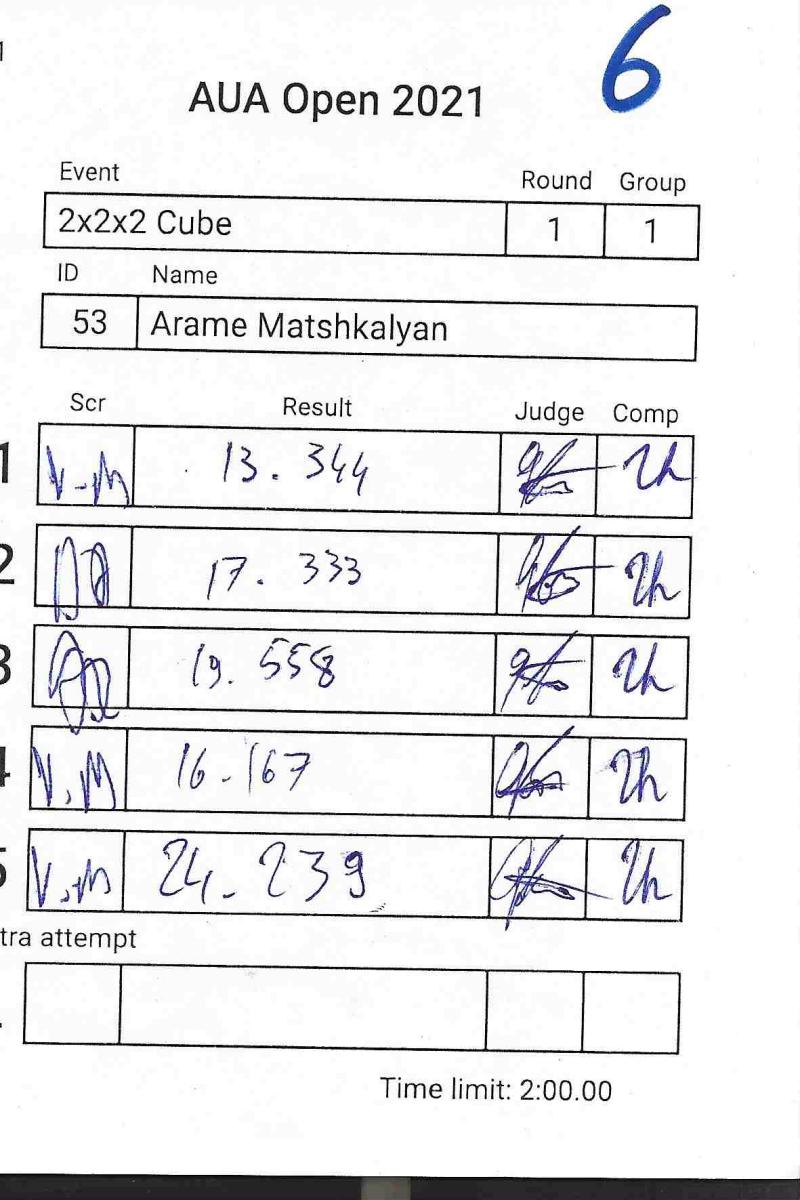 6
AUA Open 2021
Event Round Group
2x2x2 Cube 1 1
ID Name
53 Arame Matshkalyan
Scr Result Judge Comp
1 V-M 13.344
2 17.333
3 19.558
4 V.M 16.167
5 V.M 24.239
tra attempt
Time limit: 2:00.00